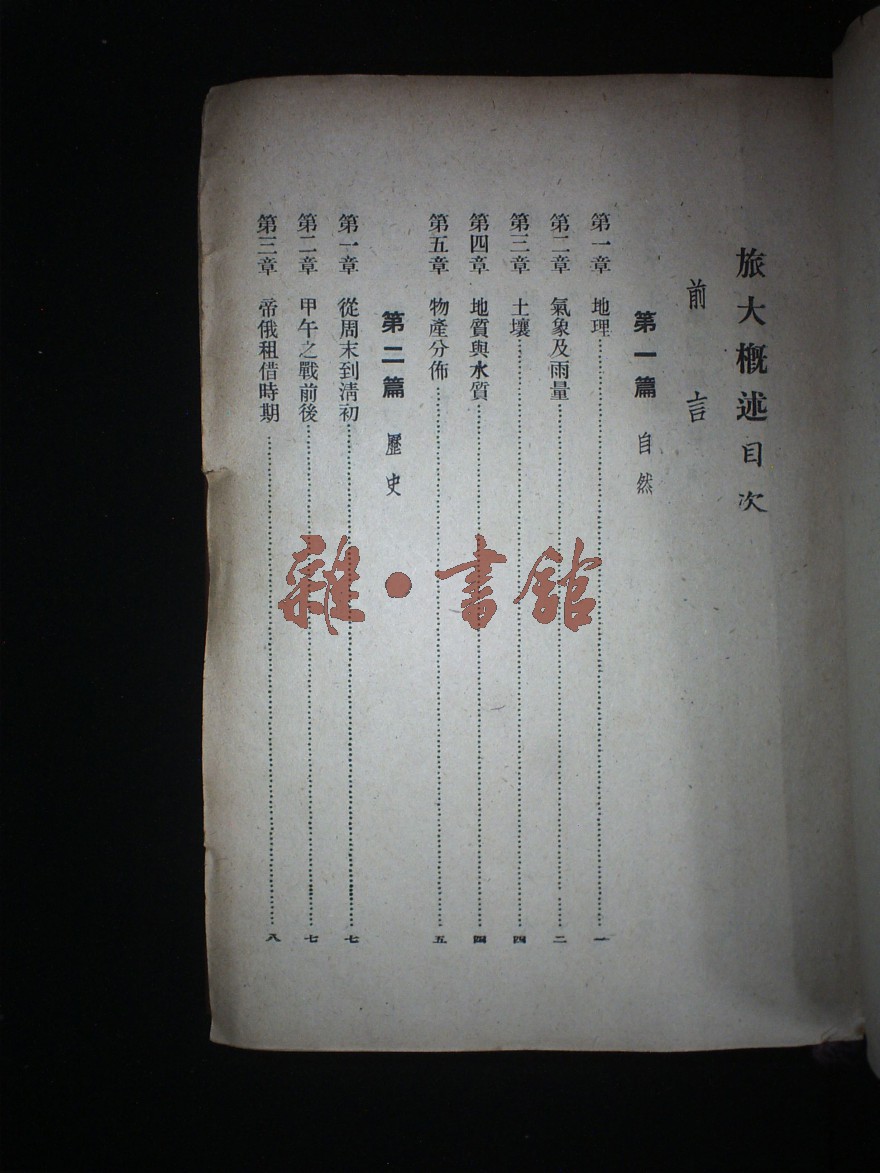 旅大概述目次
前言
第一篇 自然
第一章 地理……一
第二章 氣象及雨量……二
第三章 土壤……四
第四章 地質與水質……四
第五章 物產分佈……五
第二篇 歷史
第一章 從周末到淸初……七
第二章 甲午之戰前後……七
第三章 帝俄租借時期……八
雜·書館